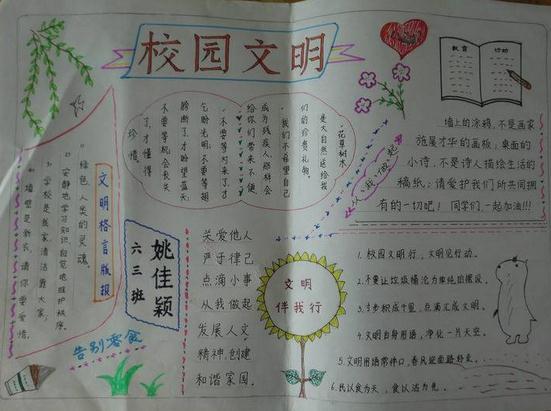 校园文明
教育
行动
墙上的涂鸦，不是画家
施展才华的画板；桌面的
小诗，不是诗人描绘生活的
稿纸；请爱护我们所共同拥
有的一切吧！同学们一起加油!!!
从“我”做起
花草树木
是大自然送给我
们的珍贵礼物。
我们不希望自己
成为残疾人那样会
给你们带来不便
不要等对来了才
乞盼光明，不要等翅
膀断了才盼望蓝天；
不要等机会丧失
了，才懂得
珍惜。
文明格言版报
绿色，人类的灵魂。
安静地学习知识，自觉地维护秩序。
学校是我家，清洁靠大家，
墙壁是新衣，请你要爱惜。
姚佳颖
六三班
告别零食
关爱他人
严于律己
点滴小事
从我做起
发展人文
精神，创建
和谐家园。
文明
伴我行
1. 校园文明行，文明见行动。
2. 不要让垃圾桶沦为单纯的摆设。
3. 寸步积成千里，点滴汇成文明。
4. 文明自身用语，净化一片天空。
5. 文明用语常伴口，春风迎面路好走。
6. 民以食为天，食以洁为先。